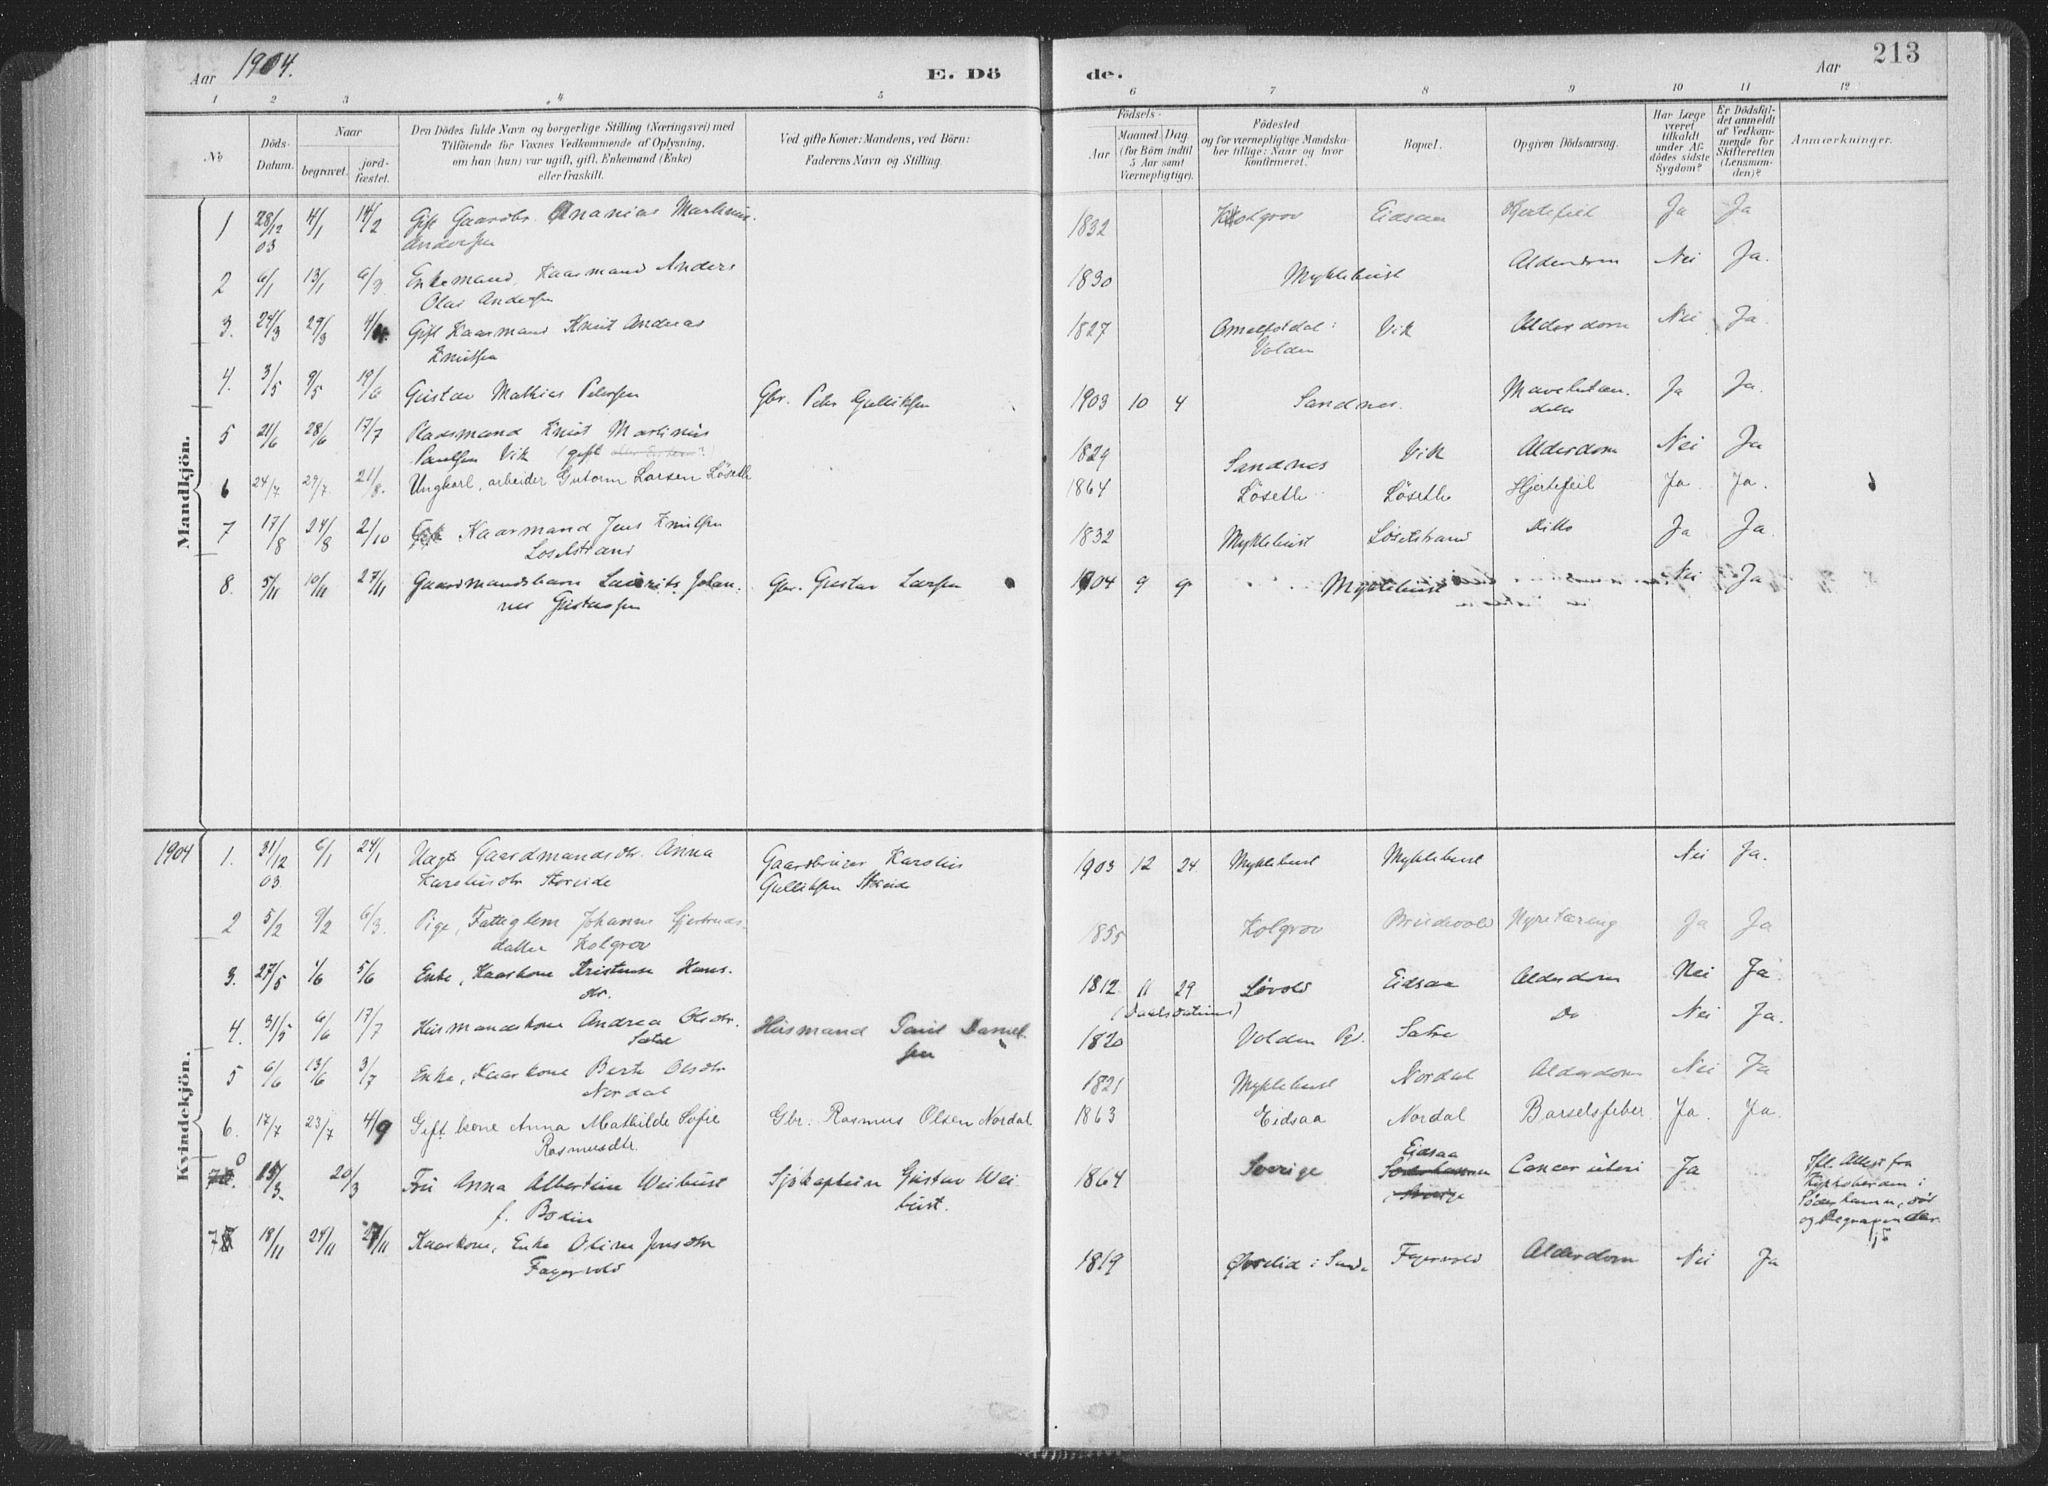 Aar 1904.
E. Dö
de.
Aar
213
1 2 3 4 5 6 7 8 9 10 11 12
No
Döds-Datum.
Naar
begravet.
jord-fæstet.
Den Dödes fulde Navn og borgerlige Stilling (Næringsvei) med
Tilföiende for Voxnes Vedkommende af Oplysning,
om han (hun) var ugift, gift, Enkemand (Enke)
eller fraskilt.
Ved gifte Koner: Mandens, ved Börn:
Faderens Navn og Stilling.
Födsels-
Aar
Maaned Dag
(for Börn indtil
5 Aar samt
Værnepligtige).
Födested
og for værnepligtige Mandska-
ber tillige: Naar og hvor
konfirmeret.
Bopæl.
Opgiven Dödsaarsag.
Har Læge
været
tilkaldt
under Af-
dödes sidste
Sygdom?
Er Dödsfal-
det anmeldt
af Vedkom-
mende for
Skifteretten
(Lensman-
den)?
Anmærkninger.
Mandkjön.
1 28/12 03 4/1 14/2 Gift Gaardbr. Ananias Markus 1832 Kolgrov Eidsaa Hjertefeil Ja Ja
Andersen
2 6/1 13/1 6/3 Enkemand, Kaarmand Anders 1830 Myklebust Alderdom Nei Ja.
Olai Andersen
3. 24/3 29/3 4/4 Gift Kaarmand Knut Andreas 1827 Omelfotdal i Vik Alderdom Nei Ja.
Knutsen Volden
4. 3/5 9/5 19/6 Gustav Mathias Petersen Gbr. Petr Gulliksen 1903 10 4 Sandnes. Ja Ja.
5 21/6 28/6 17/7 Pladsmand Knut Martinus 1829 Sandnes Vik Alderdom Nei Ja
Paulsen Vik (gift
6 24/7 29/7 21/8. Ungkarl, arbeider Gutorm Larsen Løseth 1864 Løseth Løseth Hjertefeil Ja. Ja.
7 17/8 24/8 2/10 Kaarmand Jens Knutsen 1832 Myklebust Løsetstrand Ditto Ja Ja.
Løsetstrand
8. 5/11 10/11 27/11 Gaardmandsbarn Laurits Johan- Gbr. Gustav Larsen 1904 9 9 Myklebust Nei Ja
nes Gustavsen
Kvindekjön.
1904 1. 31/12 03 6/1 24/1 Gaardmandsdtr. Anna Gaardbruger Karolus 1903 12 24 Myklebust Myklebust Nei Ja.
Karolusdtr Storeide Gulliksen Storeide
2 5/2 9/2 6/3. Pige, Fattiglem Johanne Gjertrudsdatter Kolgrov 1855 Kolgrov Breidevold Nyretæring Ja Ja
3. 27/5 1/6 5/6 Enke, Kaarkone Kristense Hans- 1812 11 29 Løvold Eidsaa Alderdom Nei Ja.
dtr. (Daabsdatum)
4. 31/5 6/6 17/7 Husmandskone Andrea Olsdtr. Husmand Paul Daniel- 1820 Volden Pd. Sætre Do Nei Ja.
Sætre sen
5 6/6 13/6 3/7 Enke, Kaarkone Berte Olsdtr 1821 Myklebust Nordal Alderdom Nei Ja
Nordal
6. 17/7 23/7 4/9 Gift kone Anna Mathilde Sofie Gbr. Rasmus Olsen Nordal 1863 Eidsaa Nordal Barselsfeber. Ja. Ja.
Rasmusdtr.
7 15/3. 20/3 Fru Anna Albertine Weibust Sjökaptein Gustav Wei- 1864 Sverige Eidsaa Cancer uteri Ja
f. Bodin bust. Söderhamn Sverige
Ifl. Attest fra
Kirkebörden i
Söderhamn, död
og begraven der
7 18/11 24/11 27/11 Kaarkone, Enke Oline Jonsdtr 1819 Øvrelid i Sande Fagervold Alderdom Nei Ja
Fagervold